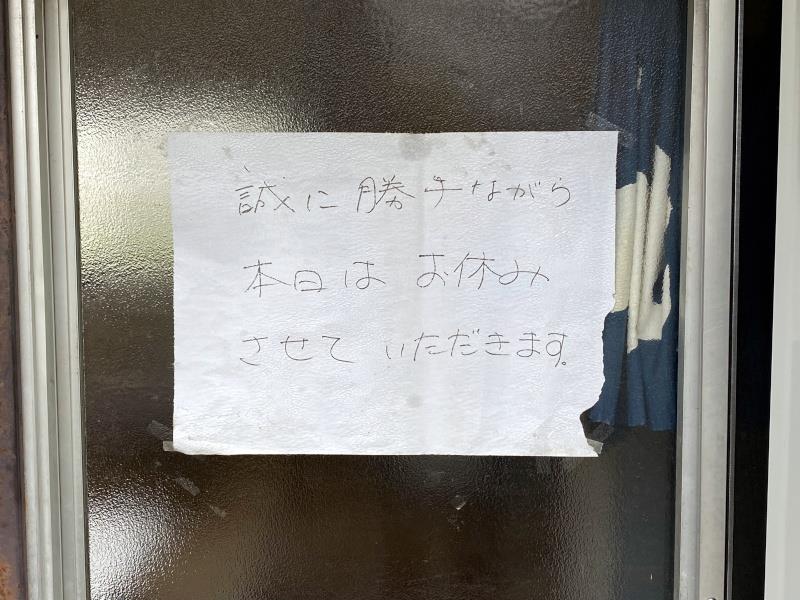 誠に勝手ながら
本日は お休み
させて いただきます。